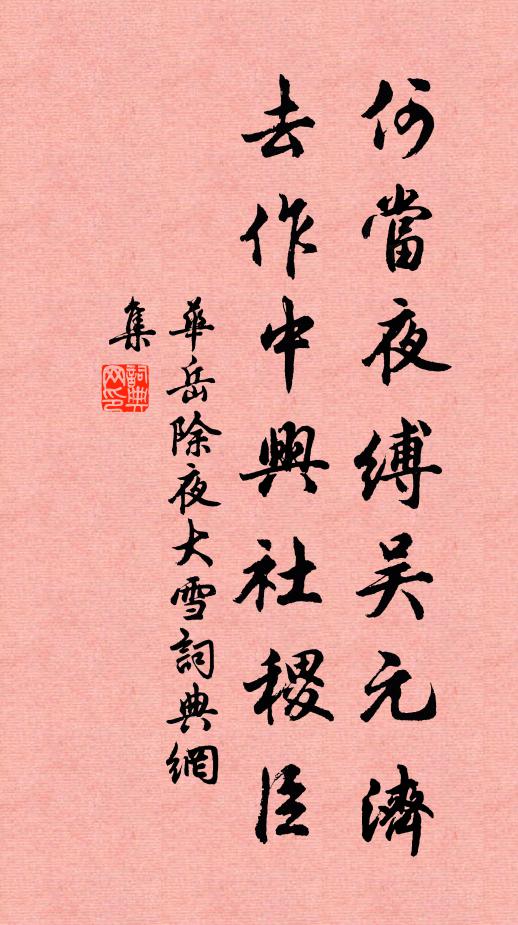 何當夜縛吴元濟
去作中興社稷臣
華岳除夜大雪詞典網
集
詞典网印